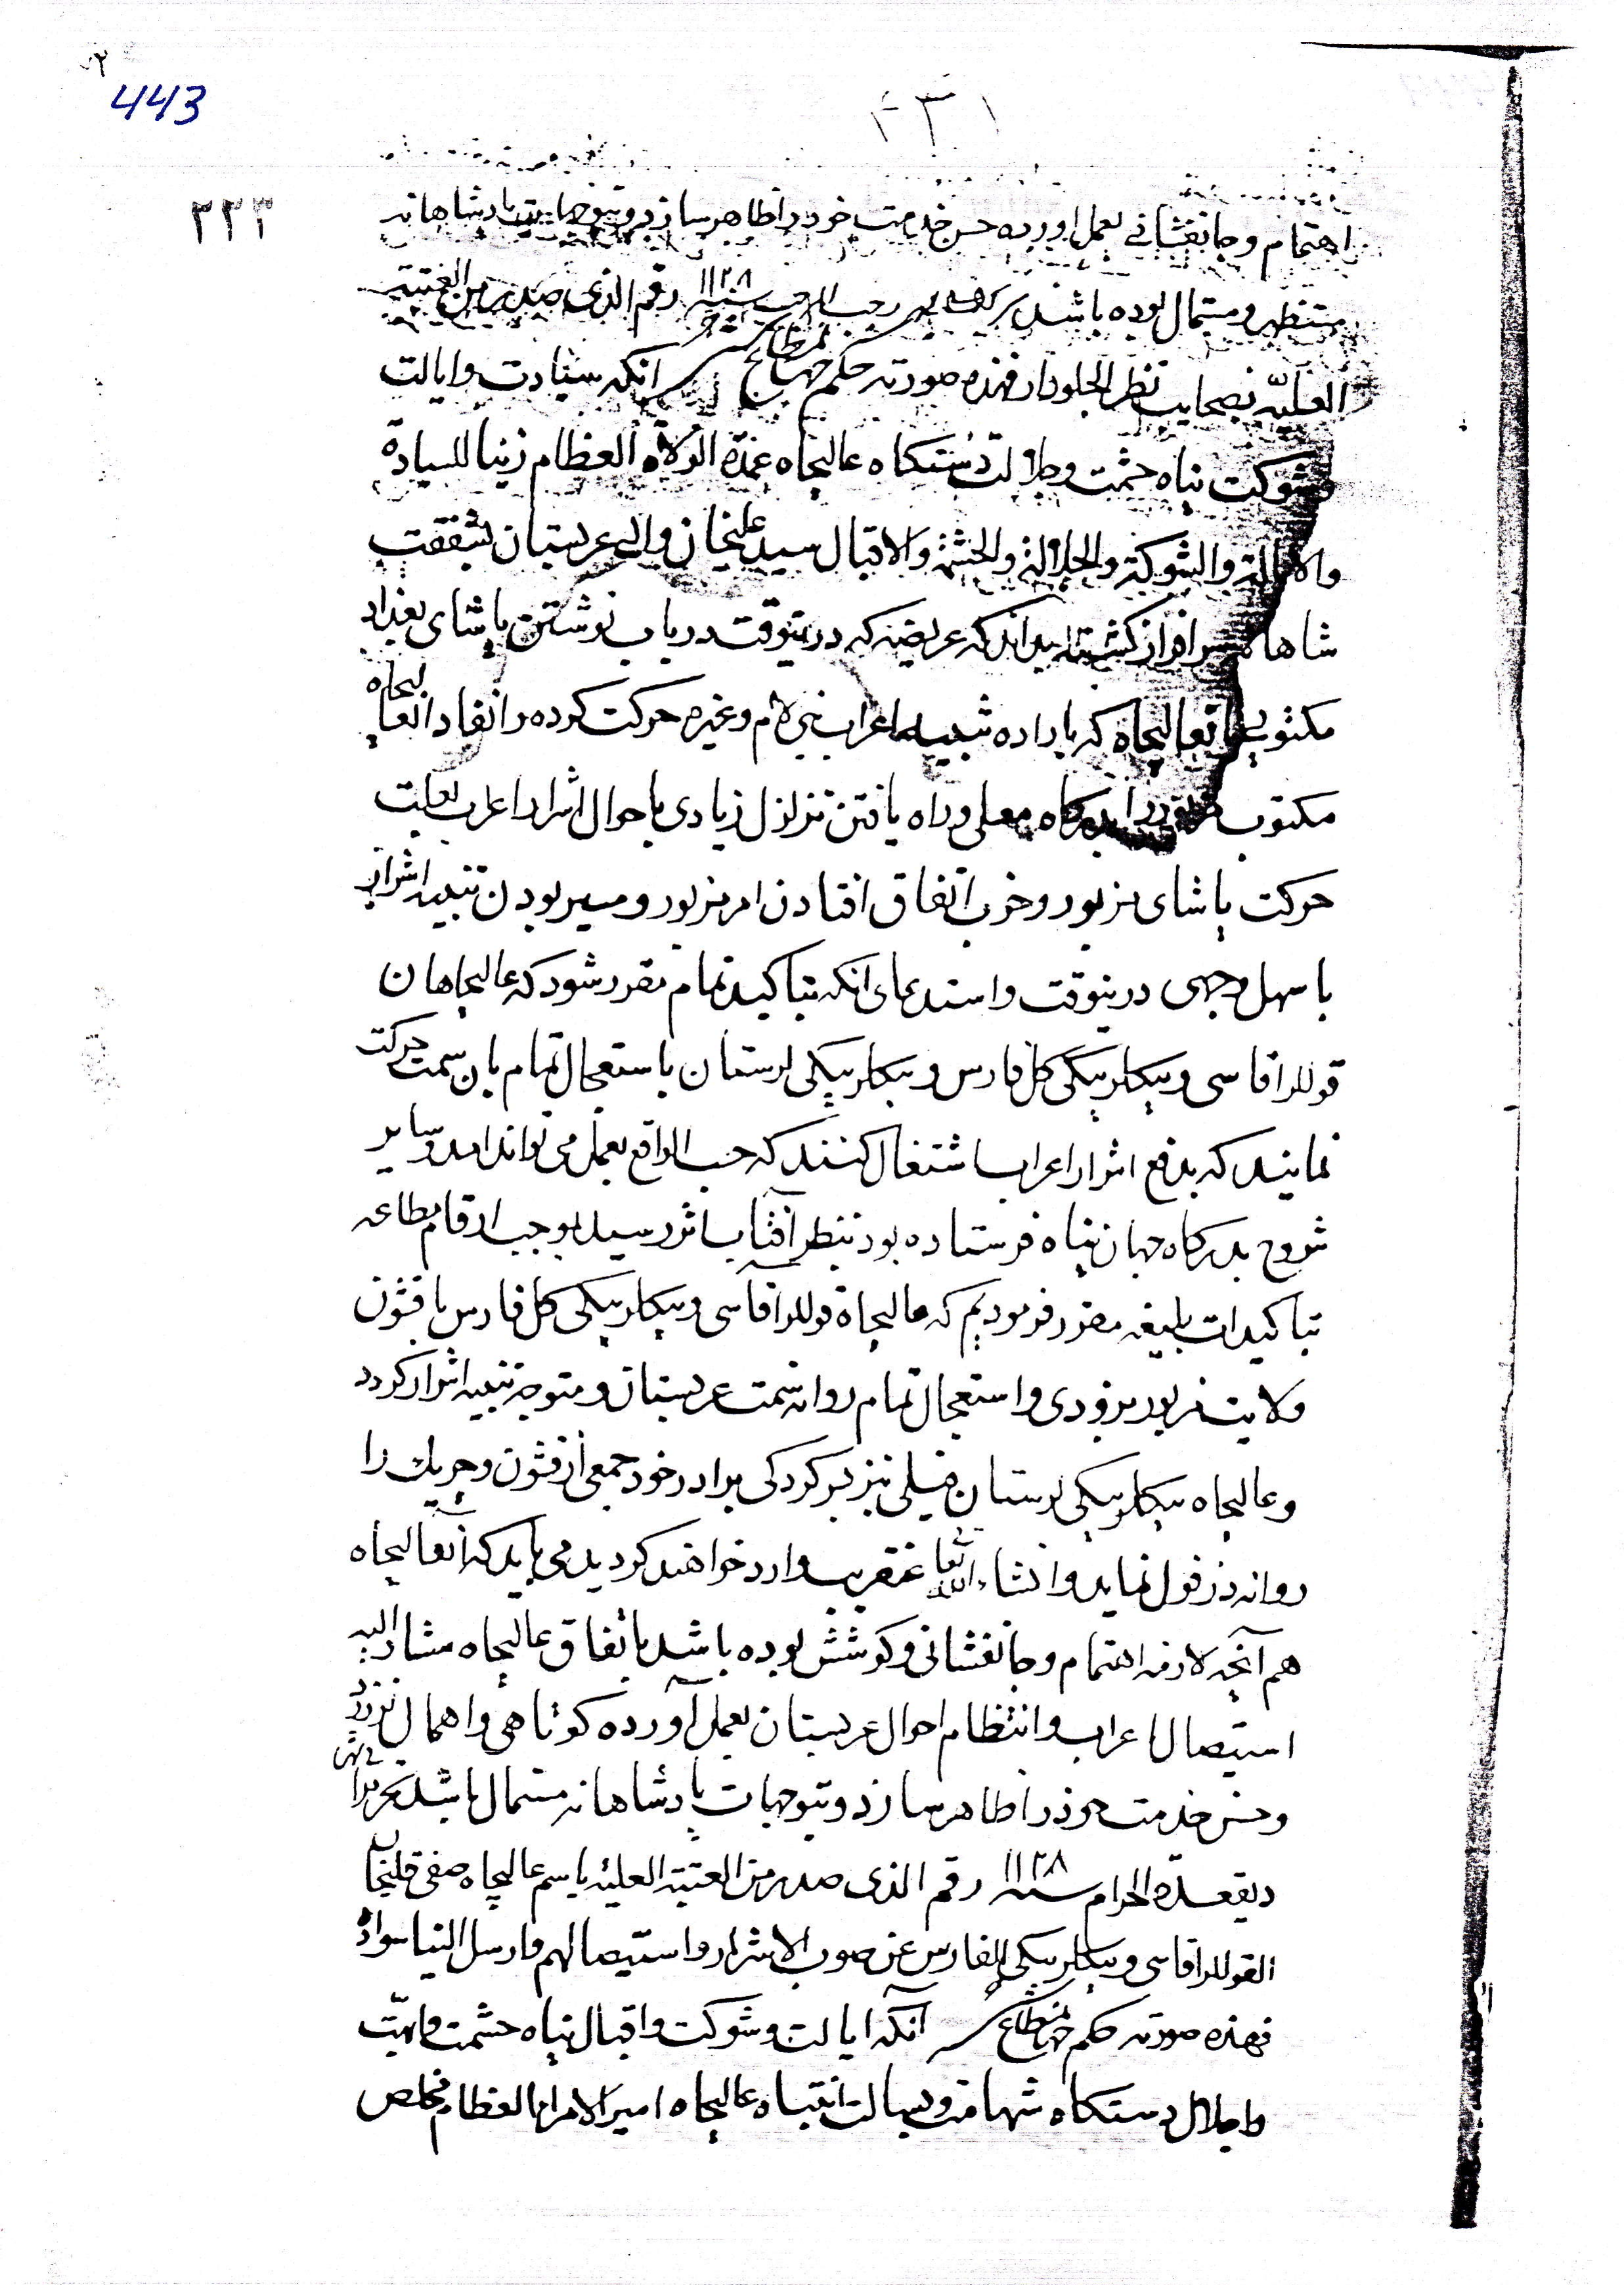 443
۲۳۱
۲۲۳
اهتمام و جانفشانی بعمل اورده حسن خدمت خود را ظاهر سازد و بتوجهات پادشاهانه
مستظهر و مستمال بوده باشد رجب المرجب سنه ۱۱۲۸ رقم الذی صدر من العتبة
العلیّه بصحابت نظر الجلودار فهذه صورته حکم جهانمطاع شد انکه سیادت و ایالت
و شوکت پناه حشمت و جلالت دستکاه عالیجاه عمدة الولاة العظام زینا للسیادة
والایالة والشوکة والجلالة والحشمة والاقبال سید علیخان والی عربستان بشفقت
شاهانه سرافراز کشته بداند که عریضه که درینوقت در باب نوشتن پاشای بغداد
مکتوبی بانعالیجاه که باراده تنبیه اعراب بنی لام و غیره حرکت کرده و انفاد انعالیجاه
مکتوب مزبور را بدرکاه معلی و راه یافتن تزلزل زیادی باحوال اشرار اعراب بعلت
حرکت پاشای مزبور و خوب اتفاق افتادن امر مزبور و میسر بودن تنبیه اشرار
باسهل وجهی درینوقت و استدعای انکه بتاکید تمام مقرر شود که عالیجاهان
قوللراقاسی و بیکلربیکی کل فارس و بیکلربیکی لرستان باستعجال تمام بان سمت حرکت
نمایند که بدفع اشرار اعراب اشتغال کنند که حسب الواقع بعمل می تواند امد و سایر
شروح بدرکاه جهان پناه فرستاده بود بنظر آفتاب اثر رسید بموجب ارقام مطاعه
بتاکیدات بلیغه مقرر فرمودیم که عالیجاه قوللرآقاسی و بیکلربیکی کل فارس با قشون
ولایت مزبور بزودی و استعجال تمام روانه سمت عربستان و متوجه تنبیه اشرار کردد
و عالیجاه بیکلربیکی لرستان فیلی نیز بسرکردکی برادر خود جمعی از قشون و چریک را
روانه دزفول نماید و انشاء الله تعا عنقریب وارد خواهند کردید می باید که آنعالیجاه
هم آنچه لازمه اهتمام و جانفشانی و کوشش بوده باشد باتفاق عالیجاه مشار الیه
استیصال اعراب و انتظام احوال عربستان بعمل آورده کوتاهی و اهمال نورزد
و حسن خدمت خود را ظاهر سازد و بتوجهات پادشاهانه مستمال باشد تحریرا فی شهر
ذیقعدة الحرام سنه ۱۱۲۸ رقم الذی صدر من العتبة العلیة باسم عالیجاه صفی قلیخان
القوللراقاسی و بیکلربیکی الفارس عن صوب الاشرار و استیصالهم و ارسل الینا سواده
فهذه صورته حکم جهانمطاع شد آنکه ایالت و شوکت و اقبال پناه حشمت و ابهّت
و اجلال دستکاه شهامت و بسالت انتباه عالیجاه امیر الامراء العظام مخلص